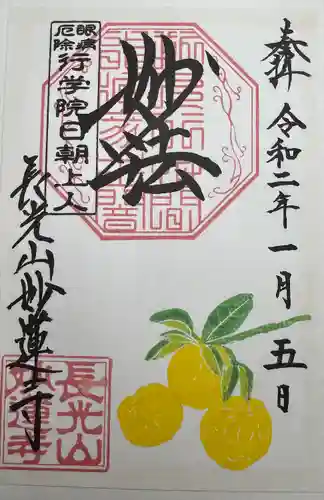 奉拝
令和二年一月五日
妙法
眼病
厄除
行学院日朝上人
長光山妙蓮寺
長光山
妙蓮寺